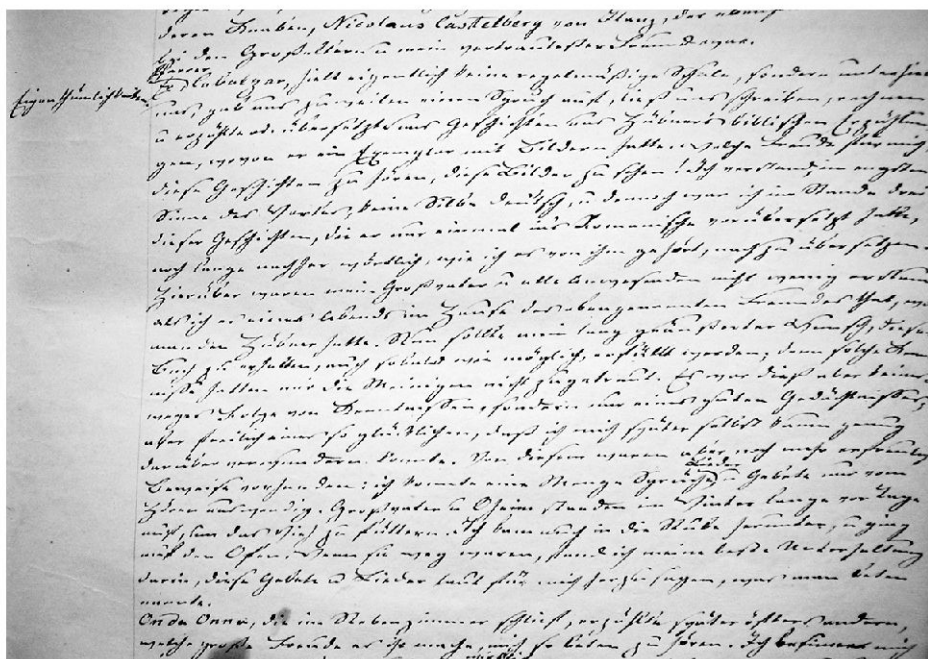 deren Knaben, Nicolaus Castelberg von Ilanz, der ebenfalls
bei den Großeltern u mein vertrautester Freund war.
Eigenthümlichkeiten
Pfarrer
hielt eigentlich keine regelmäßige Schule, sondern unterhielt
uns, gab uns zuweilen einen Spruch auf, ließ uns schreiben, rechnen
u erzählte od. übersetzte uns Geschichten aus Hübners biblischen Erzählun
gen, wovon er ein Exemplar mit Bildern hatte. Welche Freude für mich,
diese Geschichten zu hören, diese Bilder zu sehen! Ich verstand, im engsten
Sinne des Wortes, keine Silbe deutsch, u dennoch war ich im Stande drei
dieser Geschichten, die er nur einmal ins Romanische übersetzt hatte,
noch lange nachher wörtlich, wie ich es von ihm gehört, nach zu übersetzen.
Hierüber waren mein Großvater u alle Anwesenden nicht wenig erstaunt
als ich es eines Abends im Hause des obengenannten Freundes that, wo
man den Hübner hatte. Nun sollte mein lang geäußerter Wunsch, dieses
Buch zu erhalten, auch sobald wie möglich, erfüllt werden; denn solche Kennt
nisse hatten mir die Meinigen nicht zugetraut. Es war dieß aber keines
weges Folge von Kenntnissen, sondern nur eines guten Gedächtnisses,
aber freilich eines so glücklichen, daß ich mich später selbst kaum genug
darüber verwundern konnte. Von diesem waren aber noch mehr erfreuliche
Lieder
Beweise vorhanden: ich konnte eine Menge Sprüche u Gebete nur vom
Hören auswendig. Großvater u Oheim standen im Winter lange vor Tage
auf, um das Vieh zu füttern. Ich kam auch in die Stube herunter, u ging
auf den Ofen. Wenn sie weg waren, fand ich meine beste Unterhaltung
darin, diese Gebete u Lieder laut für mich herzusagen, was man beten
nannte.
Onda Onna, die im Nebenzimmer schlief, erzählte später öfters andern,
welche große Freude es ihr mache, mich so beten zu hören. Ich besinne mich